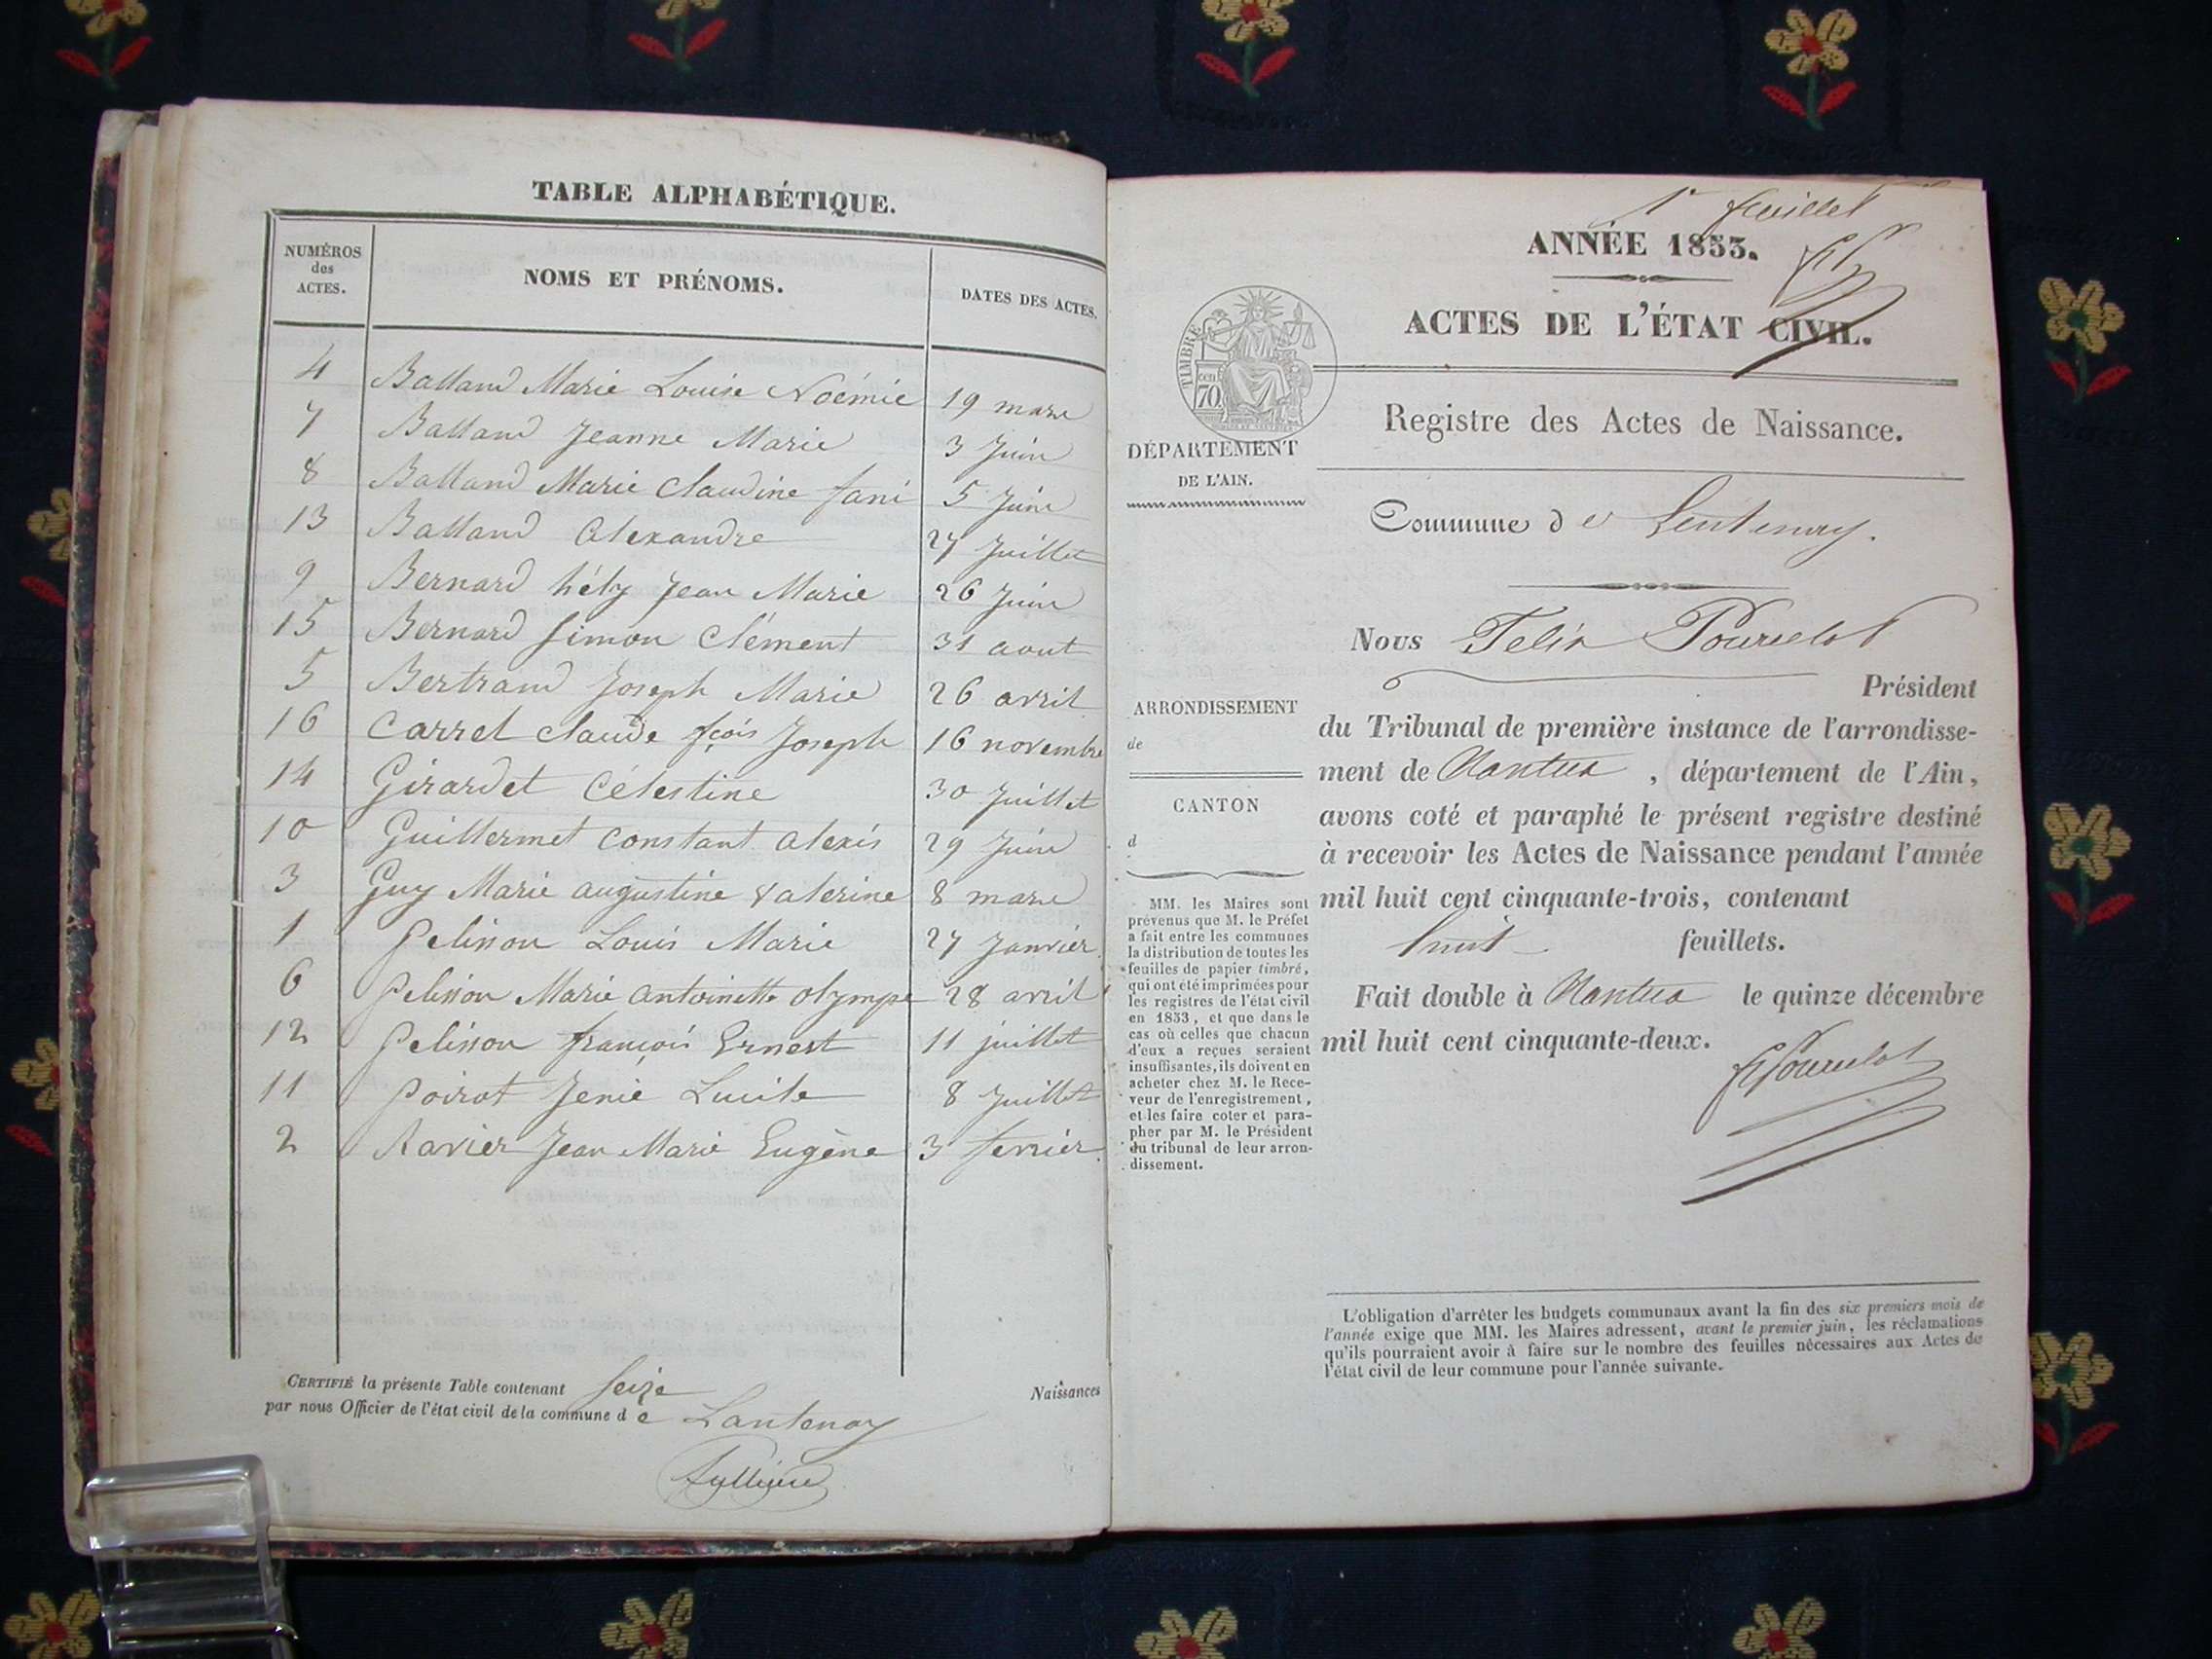 TABLE ALPHABÉTIQUE.
NUMÉROS
des
ACTES.
NOMS ET PRÉNOMS.
DATES DES ACTES.
4 Balland Marie Louise Noémie 19 mars
7 Balland Jeanne Marie 3 Juin
8 Balland Marie Claudine fani 5 Juin
13 Balland Alexandre 27 Juillet
9 Bernard hély Jean Marie 26 Juin
15 Bernard Simon Clément 31 aout
5 Bertrand Joseph Marie 26 avril
16 Carrel Claude fçois Joseph 16 novembre
14 Girardet Célestine 30 Juillet
10 Guillermet Constant Alexis 29 Juin
3 Guy Marie Augustine Valerine 8 mars
1 Pelisson Louis Marie 27 Janvier
6 Pelisson Marie Antoinette Olympe 28 avril
12 Pelisson françois Ernest 11 juillet
11 Poirot Jenie Lucile 8 Juillet
2 Ravier Jean Marie Eugène 3 fevrier
CERTIFIÉ la présente Table contenant Seize Naissances
par nous Officier de l'état civil de la commune d e Lantenay
1er feuillet
ANNÉE 1853.
ACTES DE L'ÉTAT CIVIL.
TIMBRE
70 cen
Registre des Actes de Naissance.
DÉPARTEMENT
DE L'AIN.
Commune d e Lentenay.
Nous Felix Pourcelot
Président
du Tribunal de première instance de l'arrondisse-
ment de Nantua , département de l'Ain,
avons coté et paraphé le présent registre destiné
à recevoir les Actes de Naissance pendant l'année
mil huit cent cinquante-trois, contenant
huit feuillets.
Fait double à Nantua le quinze décembre
mil huit cent cinquante-deux.
FPourcelot
ARRONDISSEMENT
de
CANTON
d
MM. les Maires sont
prévenus que M. le Préfet
a fait entre les communes
la distribution de toutes les
feuilles de papier timbré,
qui ont été imprimées pour
les registres de l'état civil
en 1853, et que dans le
cas où celles que chacun
d'eux a reçues seraient
insuffisantes, ils doivent en
acheter chez M. le Rece-
veur de l'enregistrement,
et les faire coter et para-
pher par M. le Président
du tribunal de leur arron-
dissement.
L'obligation d'arrêter les budgets communaux avant la fin des six premiers mois de
l'année exige que MM. les Maires adressent, avant le premier juin, les réclamations
qu'ils pourraient avoir à faire sur le nombre des feuilles nécessaires aux Actes de
l'état civil de leur commune pour l'année suivante.